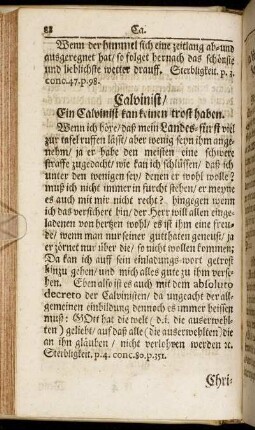 88 Ca.
Wenn der himmel sich eine zeitlang ab- und
ausgeregnet hat / so folget hernach das schönste
und lieblichste wetter drauff. Sterbligkeit. p. 3.
conc. 47. p. 98.
Calvinist /
Ein Calvinist kan keinen trost haben.
Wenn ich höre / daß mein Landes-fürst viel
zur tafel ruffen lässt / aber wenig seyn ihm ange-
nehm / ja er habe den meisten eine schwere
straffe zugedacht / wie kan ich schlüssen / daß ich
unter den wenigen sey / denen er wohl wolle?
muß ich nicht immer in furcht stehen / er meyne
es auch mit mir nicht recht? hingegen wenn
ich das versichert bin / der Herr will allen einge-
ladenen von hertzen wohl / es ist ihm eine freu-
de / wenn man nur seiner gutthaten geneust / ja
er zörnet nur über die / so nicht wollen kommen;
Da kan ich auff sein einladungs-wort getrost
hinzu gehen / und mich alles gute zu ihm verse-
hen. Eben also ist es auch mit dem absoluto
decreto der Calvinisten / da ungeacht der all-
gemeinen einbildung dennoch es immer heissen
muß: GOtt hat die welt / (d. i. die auserwehl-
ten) geliebt / auf daß alle (die auserwehlten) die
an ihn gläuben / nicht verlohren werden ꝛc.
Sterbligkeit. p. 4. conc. 80. p. 351.
Chri-